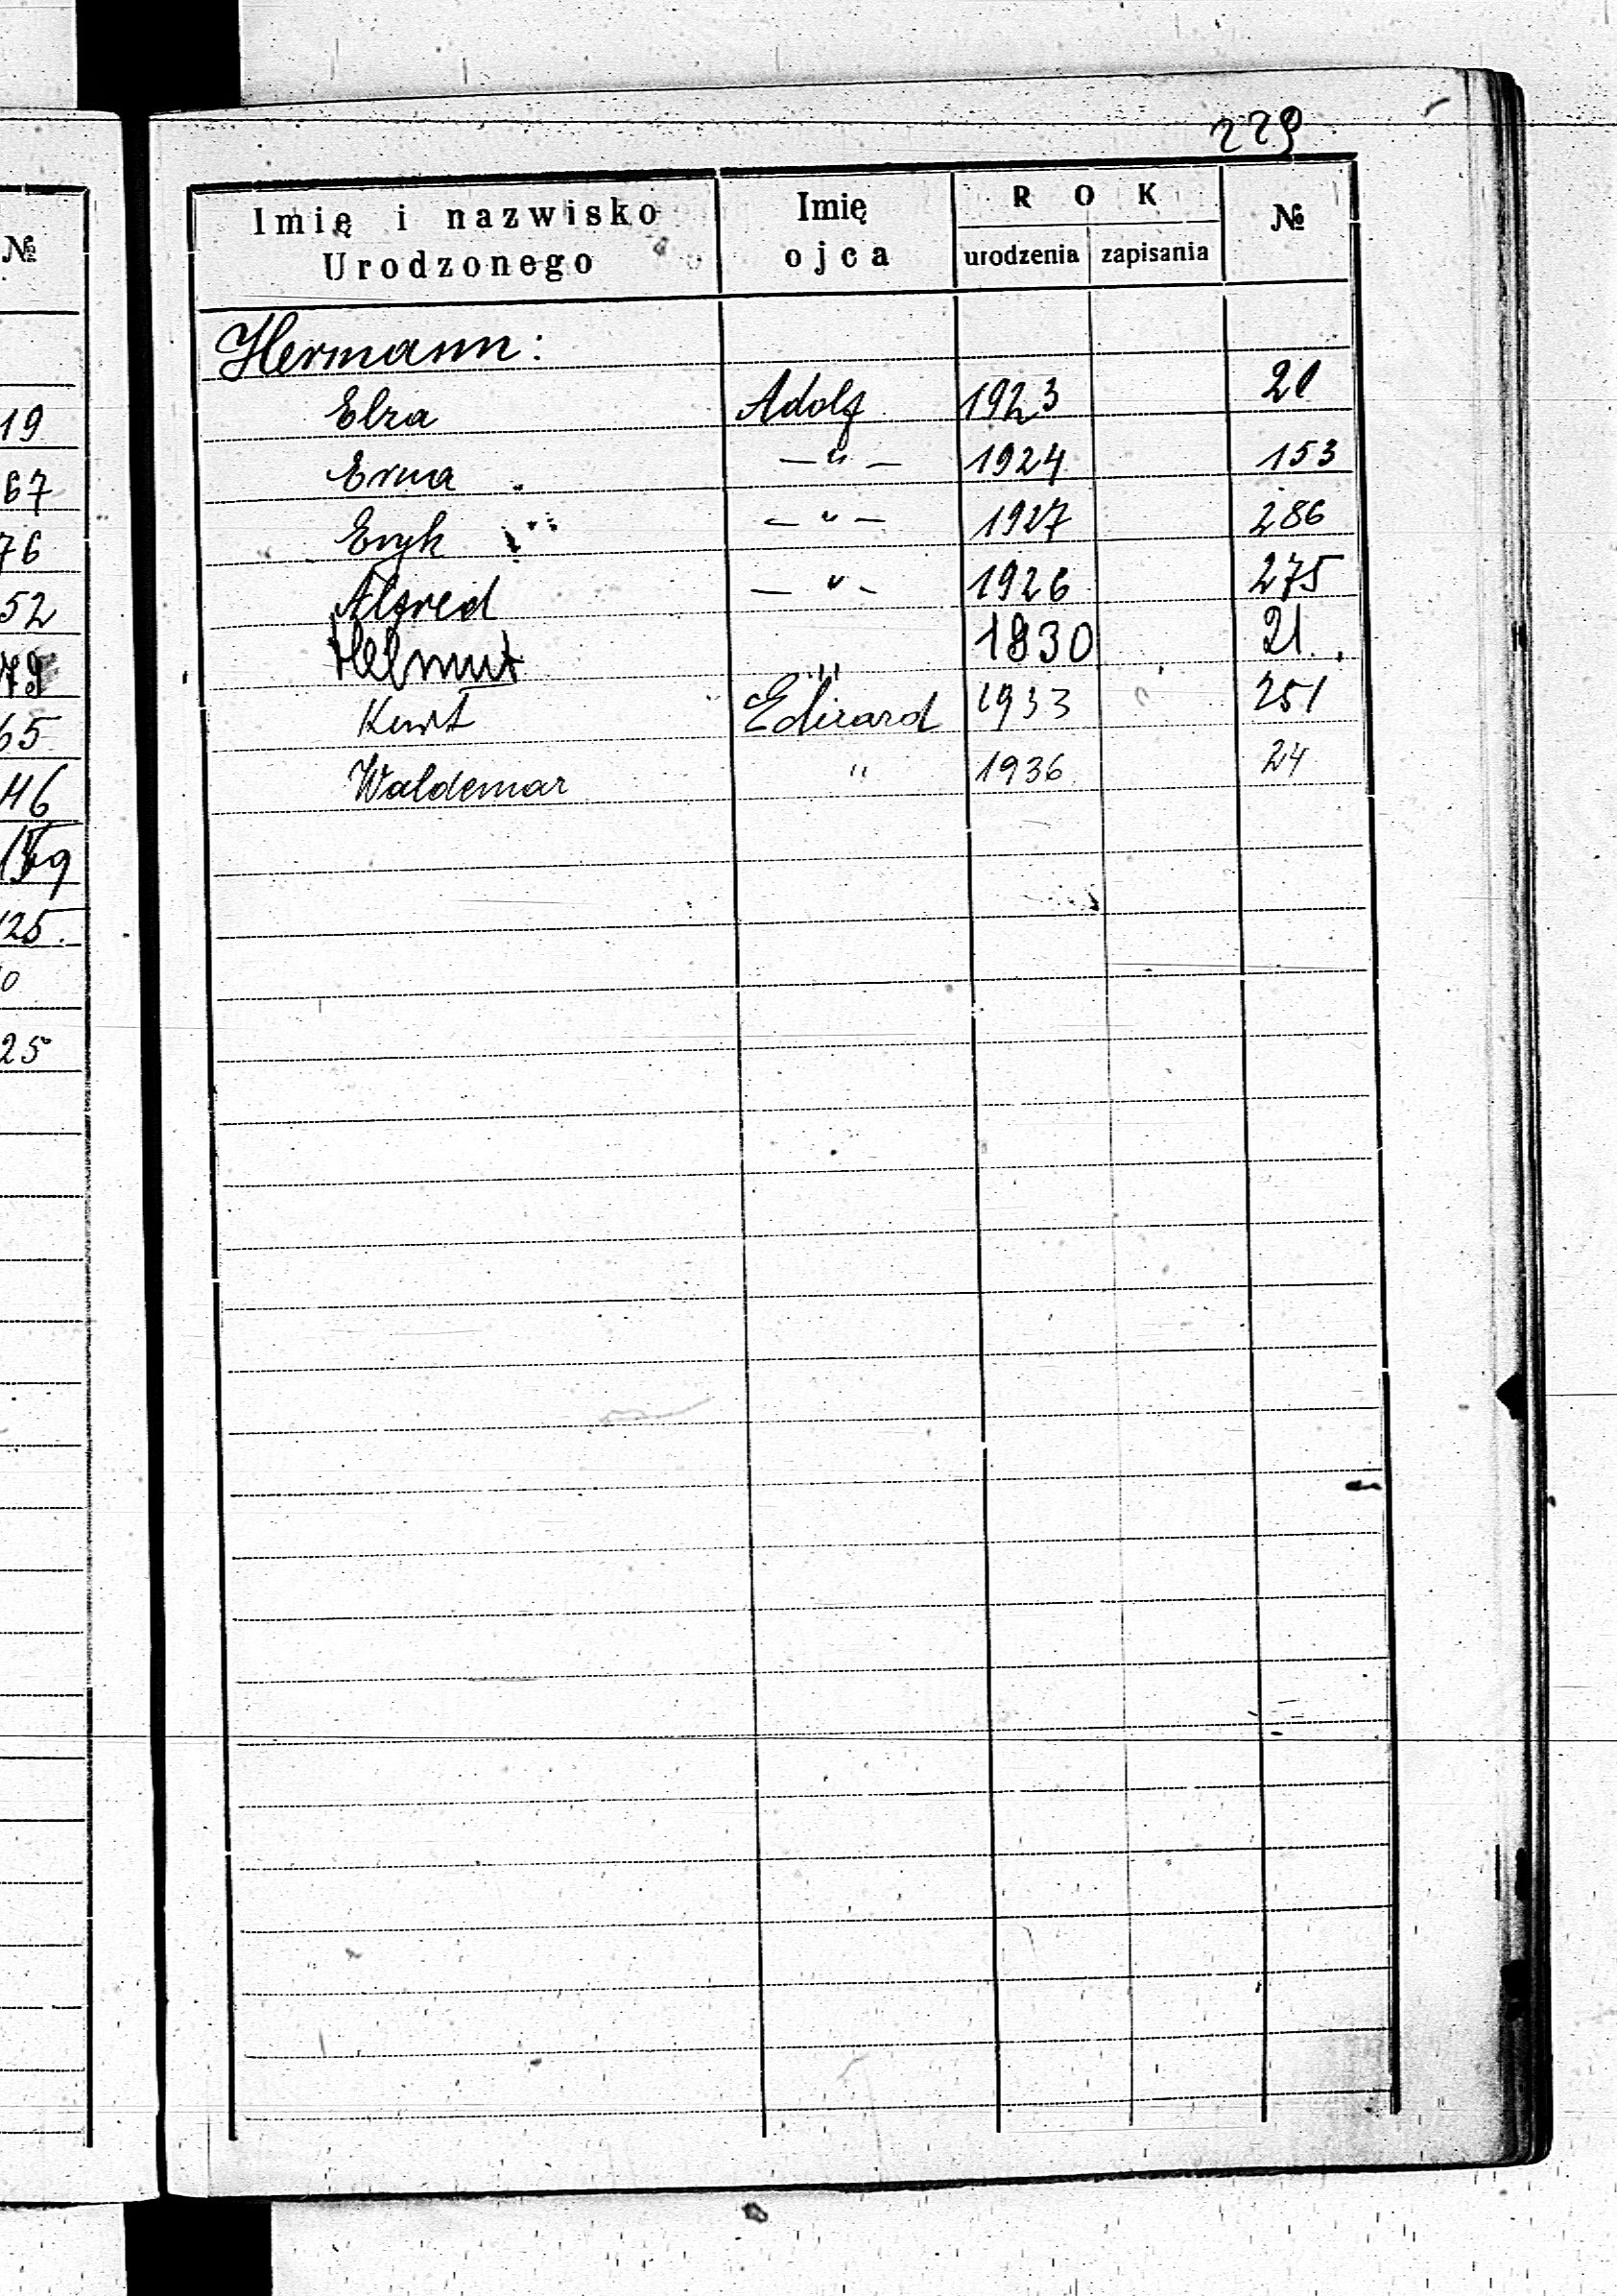 №
19
67
76
52
79
65
46
125.
0
25
229
Imię i nazwisko Urodzonego Imię ojca ROK urodzenia zapisania №
Hermann:
Elza Adolf 1923 20
Erna —"— 1924 153
Eryk —"— 1927 286
Alfred —"— 1926 275
Helmut " 1930 21.
Kurt Edward 1933 251
Waldemar " 1936 24